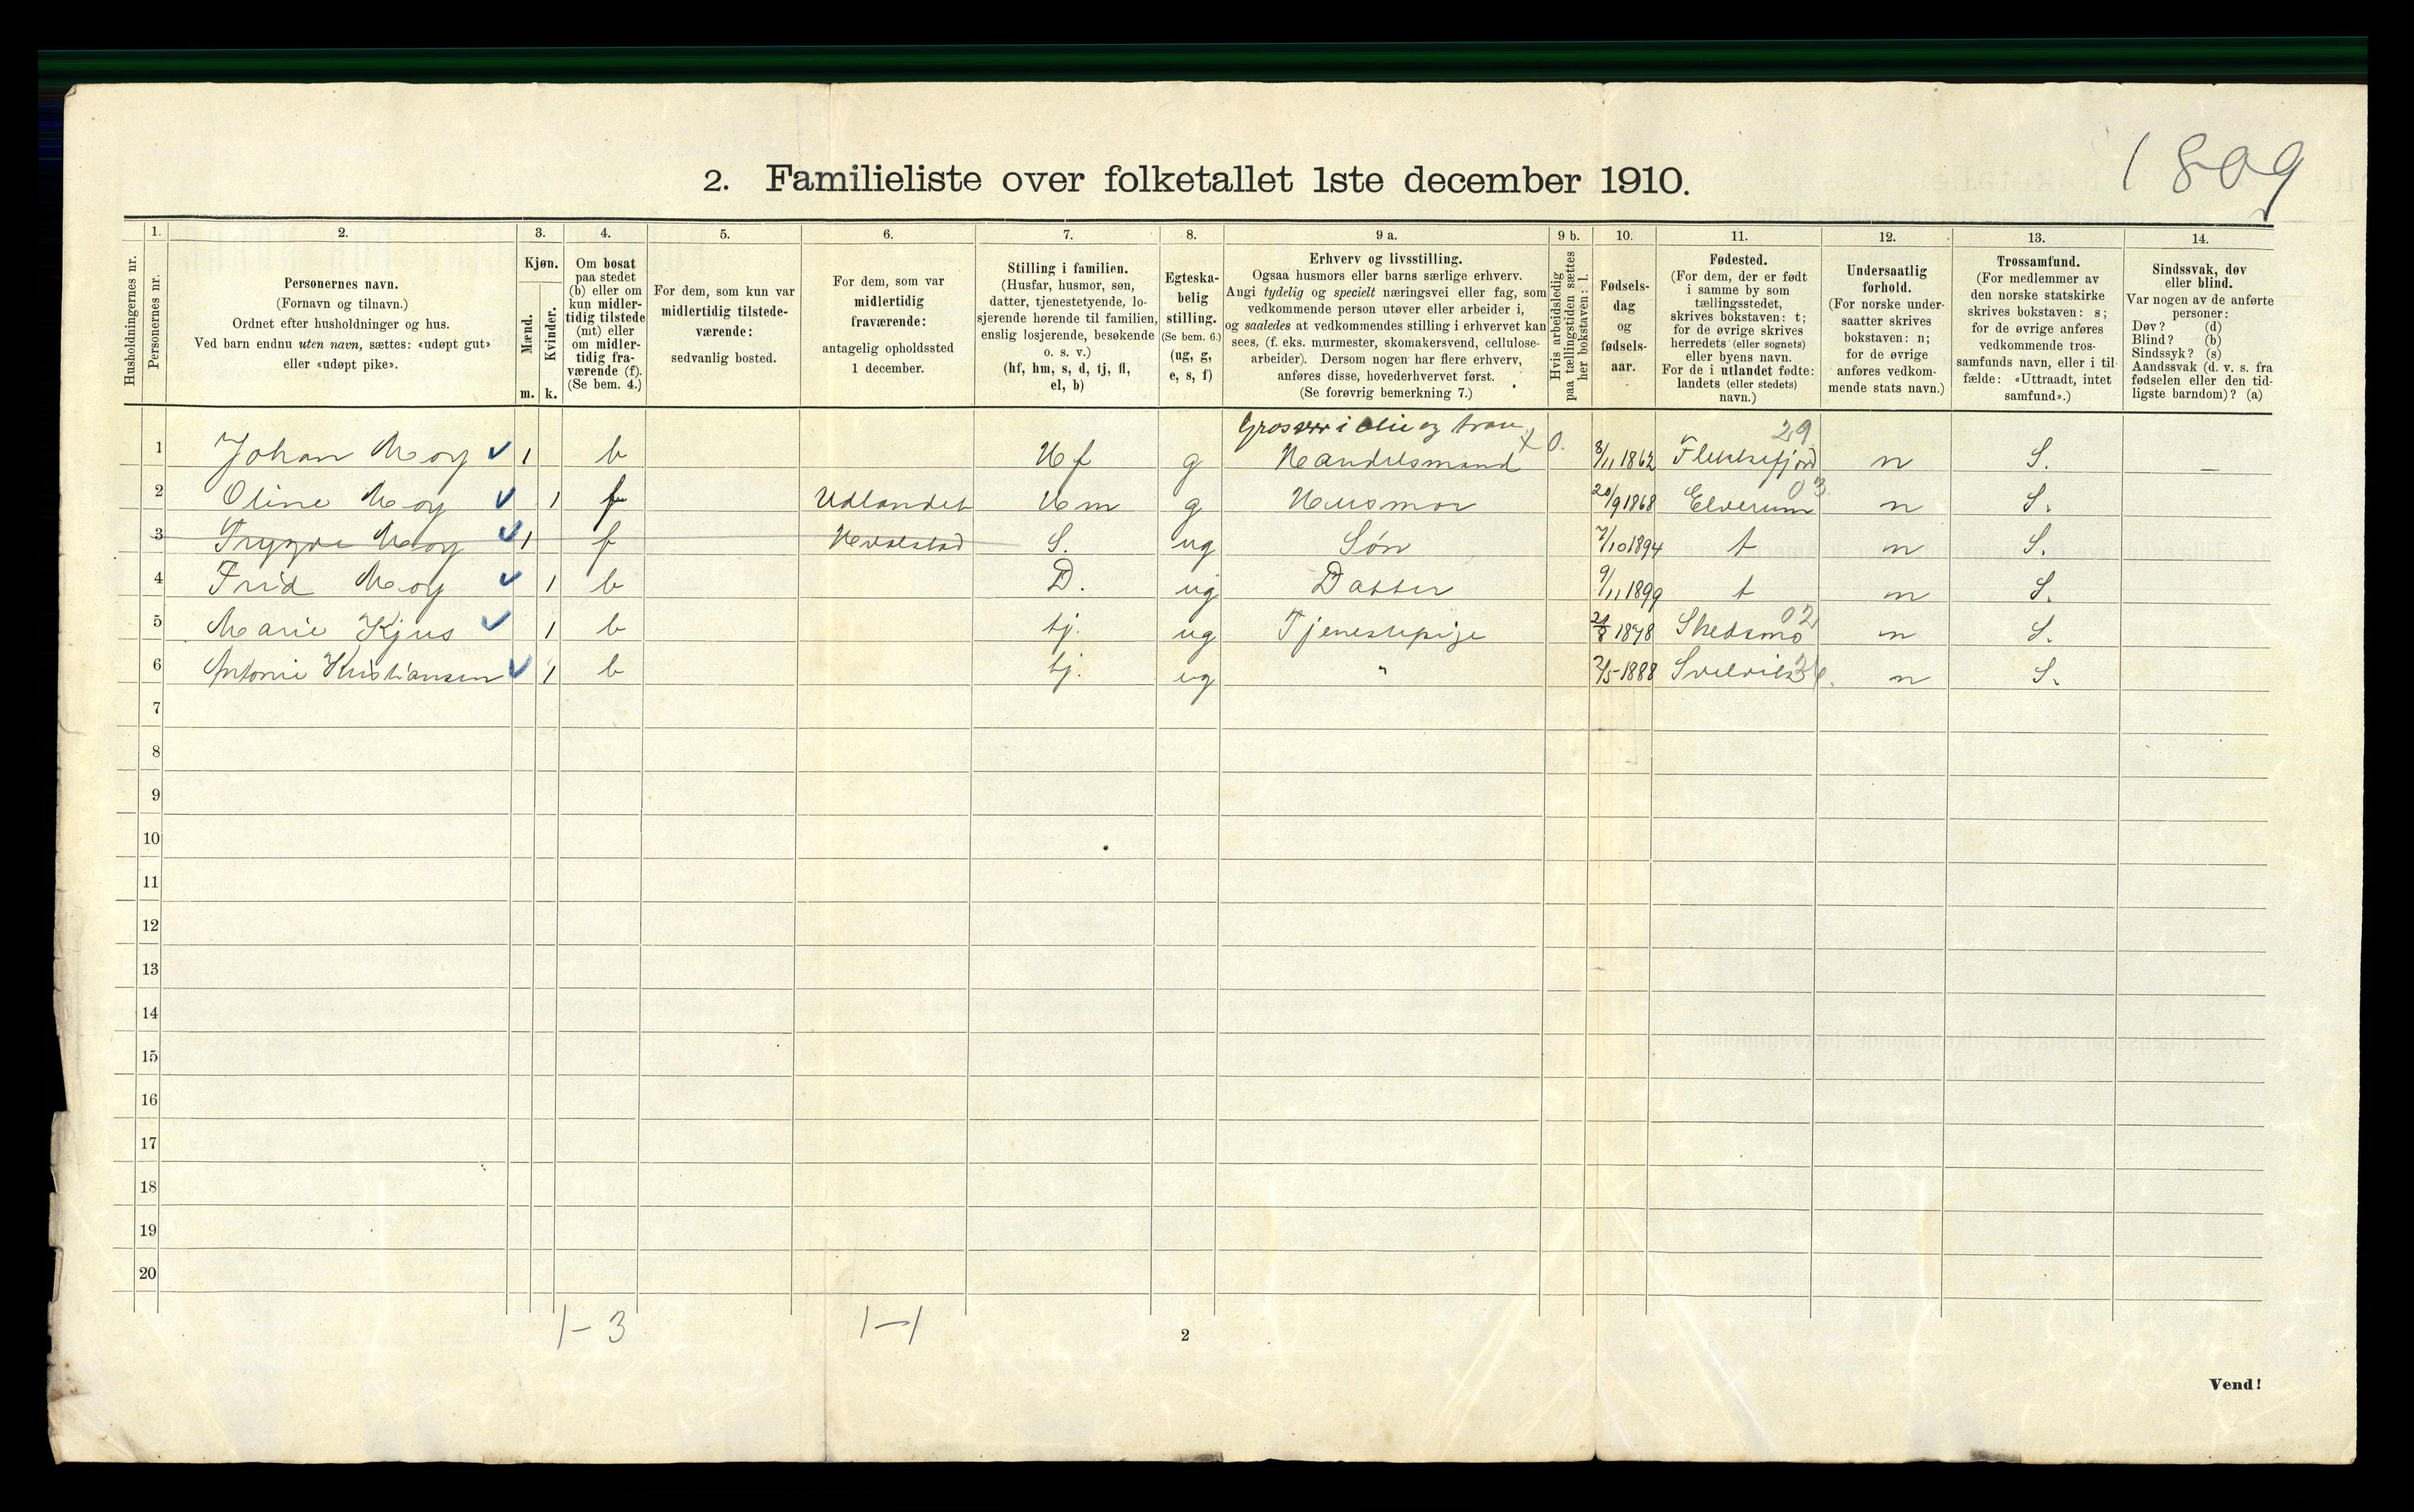 1809
2. Familieliste over folketallet 1ste december 1910.
1. 2. 3. 4. 5. 6. 7. 8. 9 a. 9 b. 10. 11. 12. 13. 14.
Husholdningernes nr.
Personernes nr.
Personernes navn.
(Fornavn og tilnavn.)
Ordnet efter husholdninger og hus.
Ved barn endnu uten navn, sættes: «udøpt gut»
eller «udøpt pike».
Kjøn.
Mænd.
Kvinder.
m. k.
Om bosat
paa stedet
(b) eller om
kun midler-
tidig tilstede
(mt) eller
om midler-
tidig fra-
værende (f).
(Se bem. 4.)
For dem, som kun var
midlertidig tilstede-
værende:
sedvanlig bosted.
For dem, som var
midlertidig
fraværende:
antagelig opholdssted
1 december.
Stilling i familien.
(Husfar, husmor, søn,
datter, tjenestetyende, lo-
sjerende hørende til familien,
enslig losjerende, besøkende
o. s. v.)
(hf, hm, s, d, tj, fl,
el, b)
Egteska-
belig
stilling.
(Se bem. 6.)
(ug, g,
e, s, f)
Erhverv og livsstilling.
Ogsaa husmors eller barns særlige erhverv.
Angi tydelig og specielt næringsvei eller fag, som
vedkommende person utøver eller arbeider i,
og saaledes at vedkommendes stilling i erhvervet kan
sees, (f. eks. murmester, skomakersvend, cellulose-
arbeider). Dersom nogen har flere erhverv,
anføres disse, hovederhvervet først.
(Se forøvrig bemerkning 7.)
Hvis arbeidsledig
paa tællingstiden sættes
her bokstaven: l.
Fødsels-
dag
og
fødsels-
aar.
Fødested.
(For dem, der er født
i samme by som
tællingsstedet,
skrives bokstaven: t;
for de øvrige skrives
herredets (eller sognets)
eller byens navn.
For de i utlandet fødte:
landets (eller stedets)
navn.)
Undersaatlig
forhold.
(For norske under-
saatter skrives
bokstaven: n;
for de øvrige
anføres vedkom-
mende stats navn.)
Trossamfund.
(For medlemmer av
den norske statskirke
skrives bokstaven: s;
for de øvrige anføres
vedkommende tros-
samfunds navn, eller i til-
fælde: «Uttraadt, intet
samfund».)
Sindssvak, døv
eller blind.
Var nogen av de anførte
personer:
Døv? (d)
Blind? (b)
Sindssyk? (s)
Aandssvak (d. v. s. fra
fødselen eller den tid-
ligste barndom)? (a)
i Olie og tran 29
1 Johan Moy 1 b Hf g Handelsmand x 0. 8/11 1862 Flekkefjord n S. –
2 Oline Moy 1 f Udlandet Hm g Husmor 20/9 1868 Elverum 03 n S.
3 Trygve Moy 1 f Hvalstad S. ug Søn 7/10 1894 t n S.
4 Frid Moy 1 b D. ug Datter 9/11 1899 t n S.
5 Marie Kjus 1 b tj. ug Tjenestepige 1878 Skedsmo 02 n S.
6 Antonie Kristiansen 1 b tj. ug " 2/5-1888 Svelvik n S.
7
8
9
10
11
12
13
14
15
16
17
18
19
20
1-3 1-1
2
Vend!